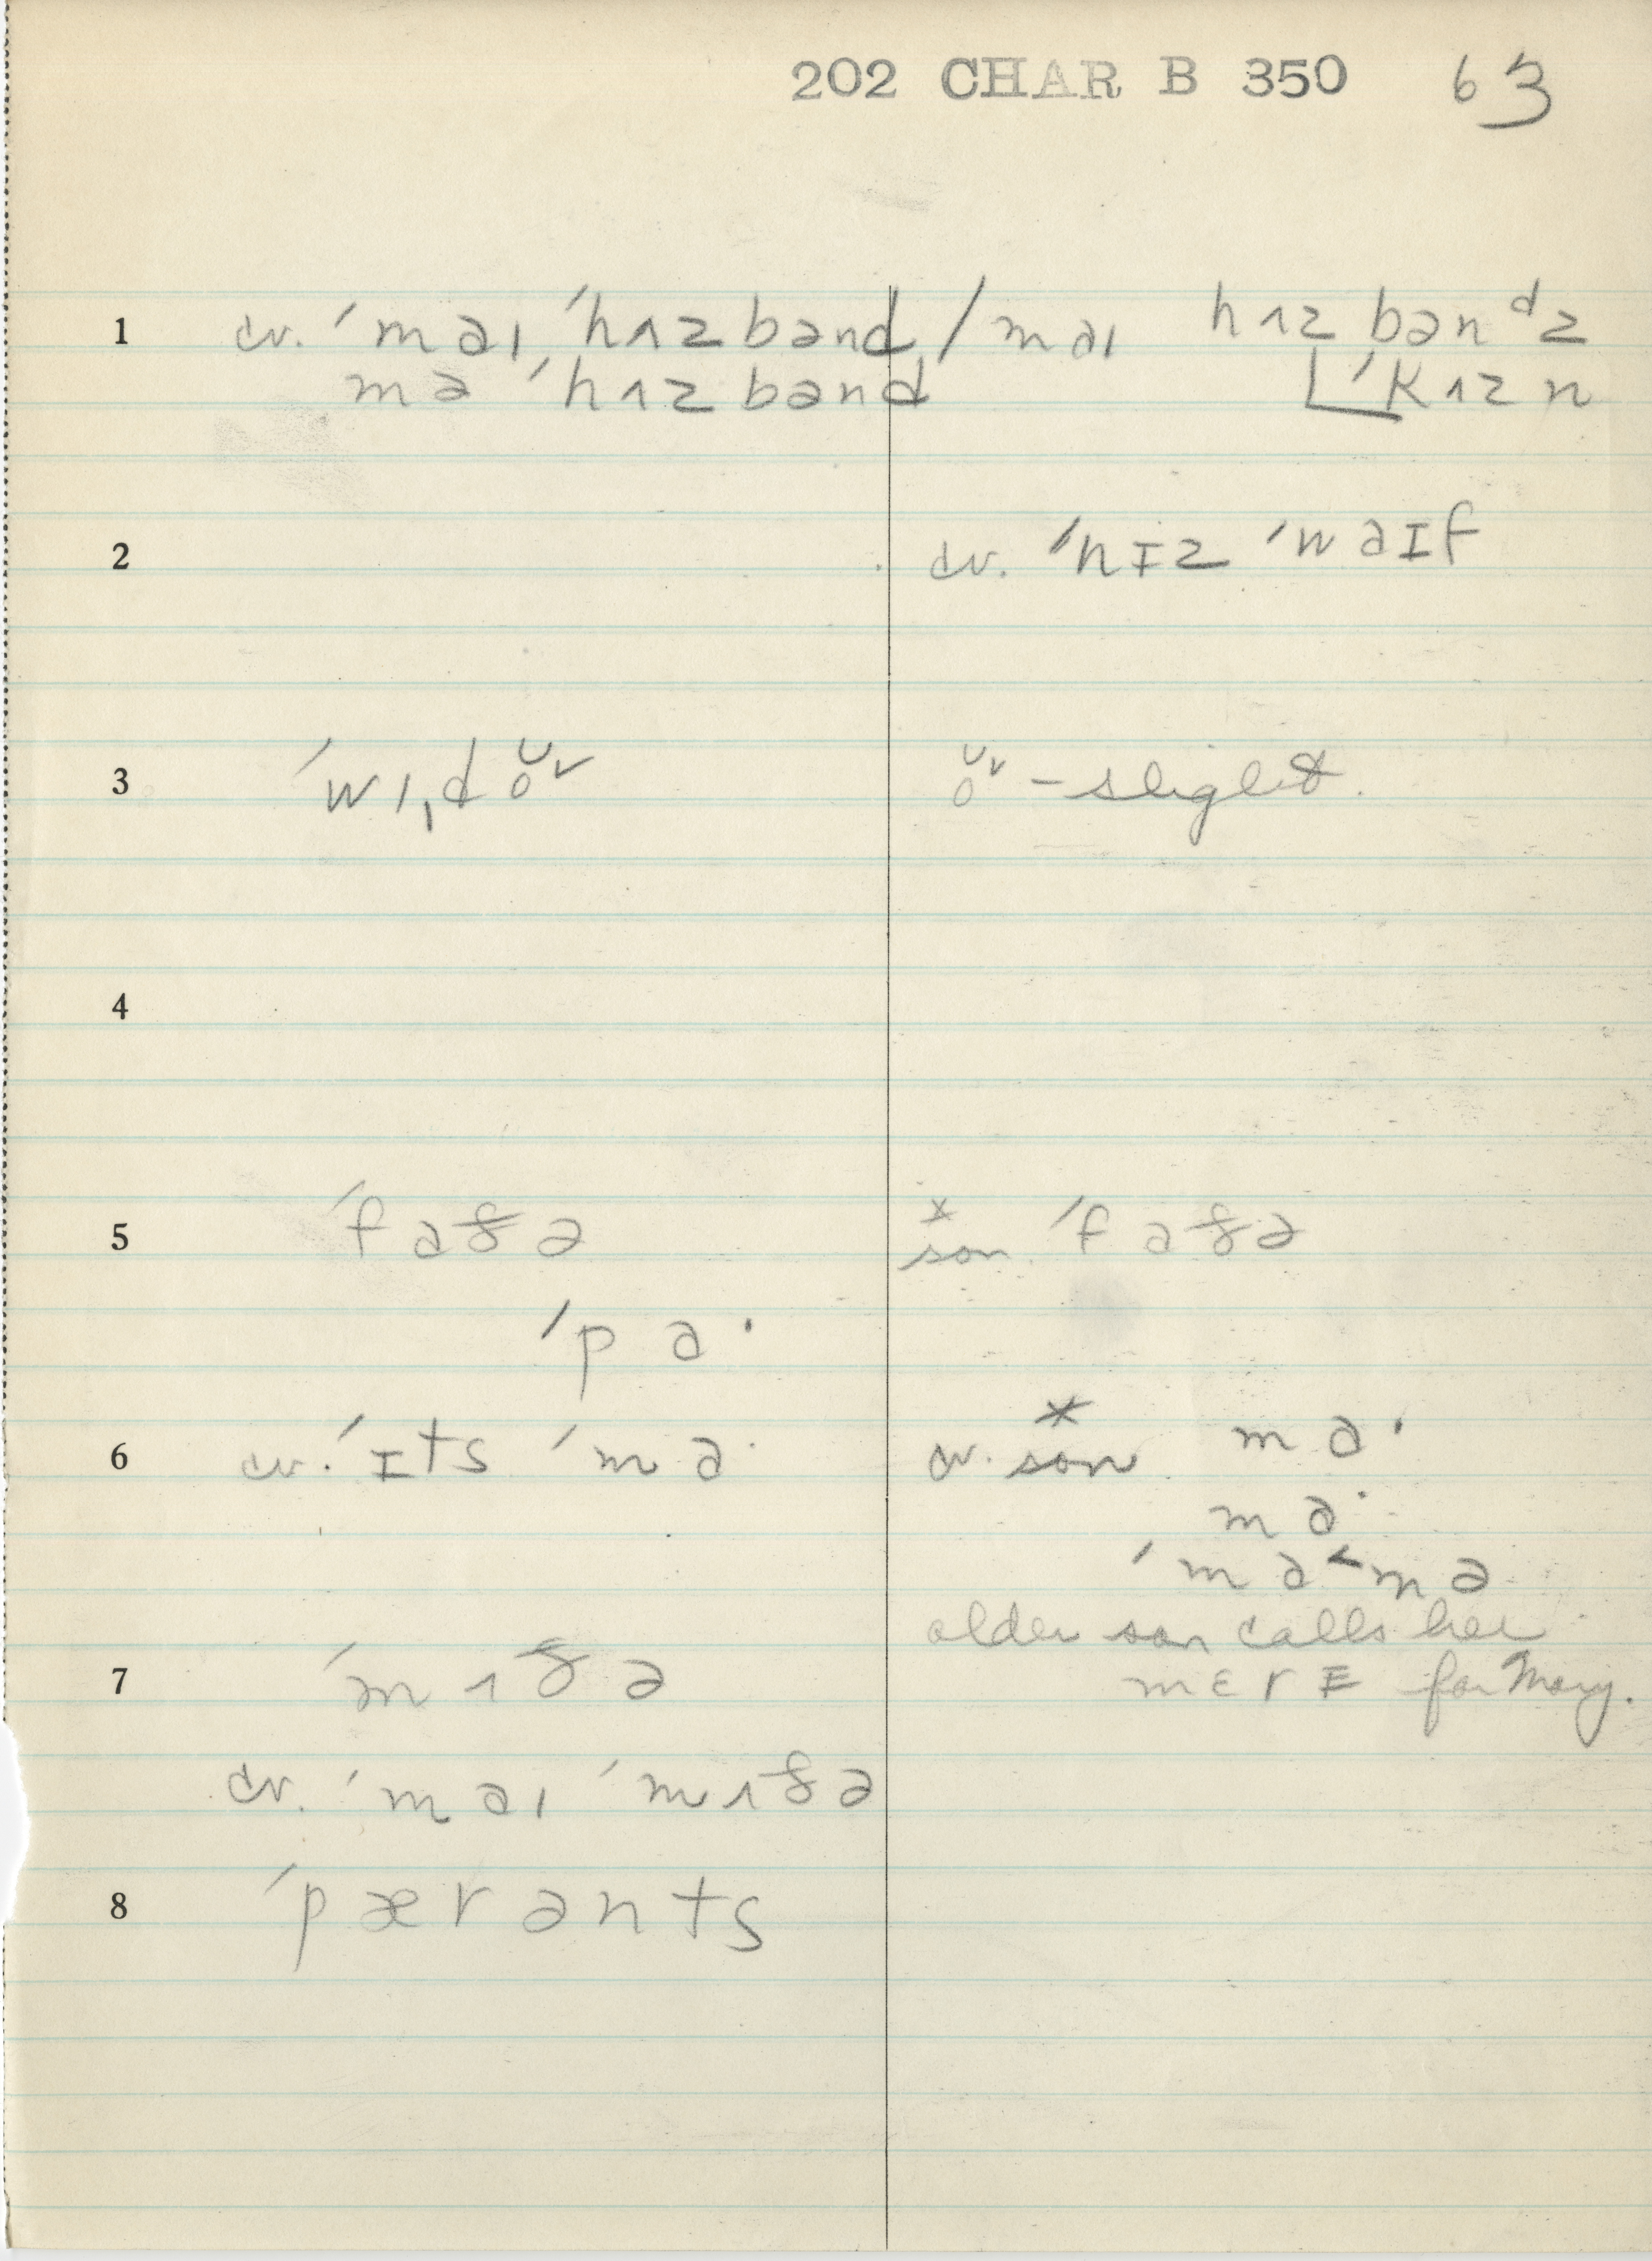 202 CHAR B 350 63
1 cv. ˈmaɪ ˈhʌzbənd / maɪ hʌzbənᵈz
mə ˈhʌzbənd ˈkʌzn
2 cv. ˈhɪz ˈwaɪf
3 ˈwɪˌdo ᴗ˅ o ᴗ˅ – slight.
4
5 ˈfaðə * son. ˈfaðə
ˈpa·
6 cv. ˈɪts ˈma· cv. * son ma·
ma·
ˈma˂mə
older son calls her
7 ˈmʌðə mɛrɪ for Mary.
cv. ˈmaɪ ˈmʌðə
8 ˈpærənts